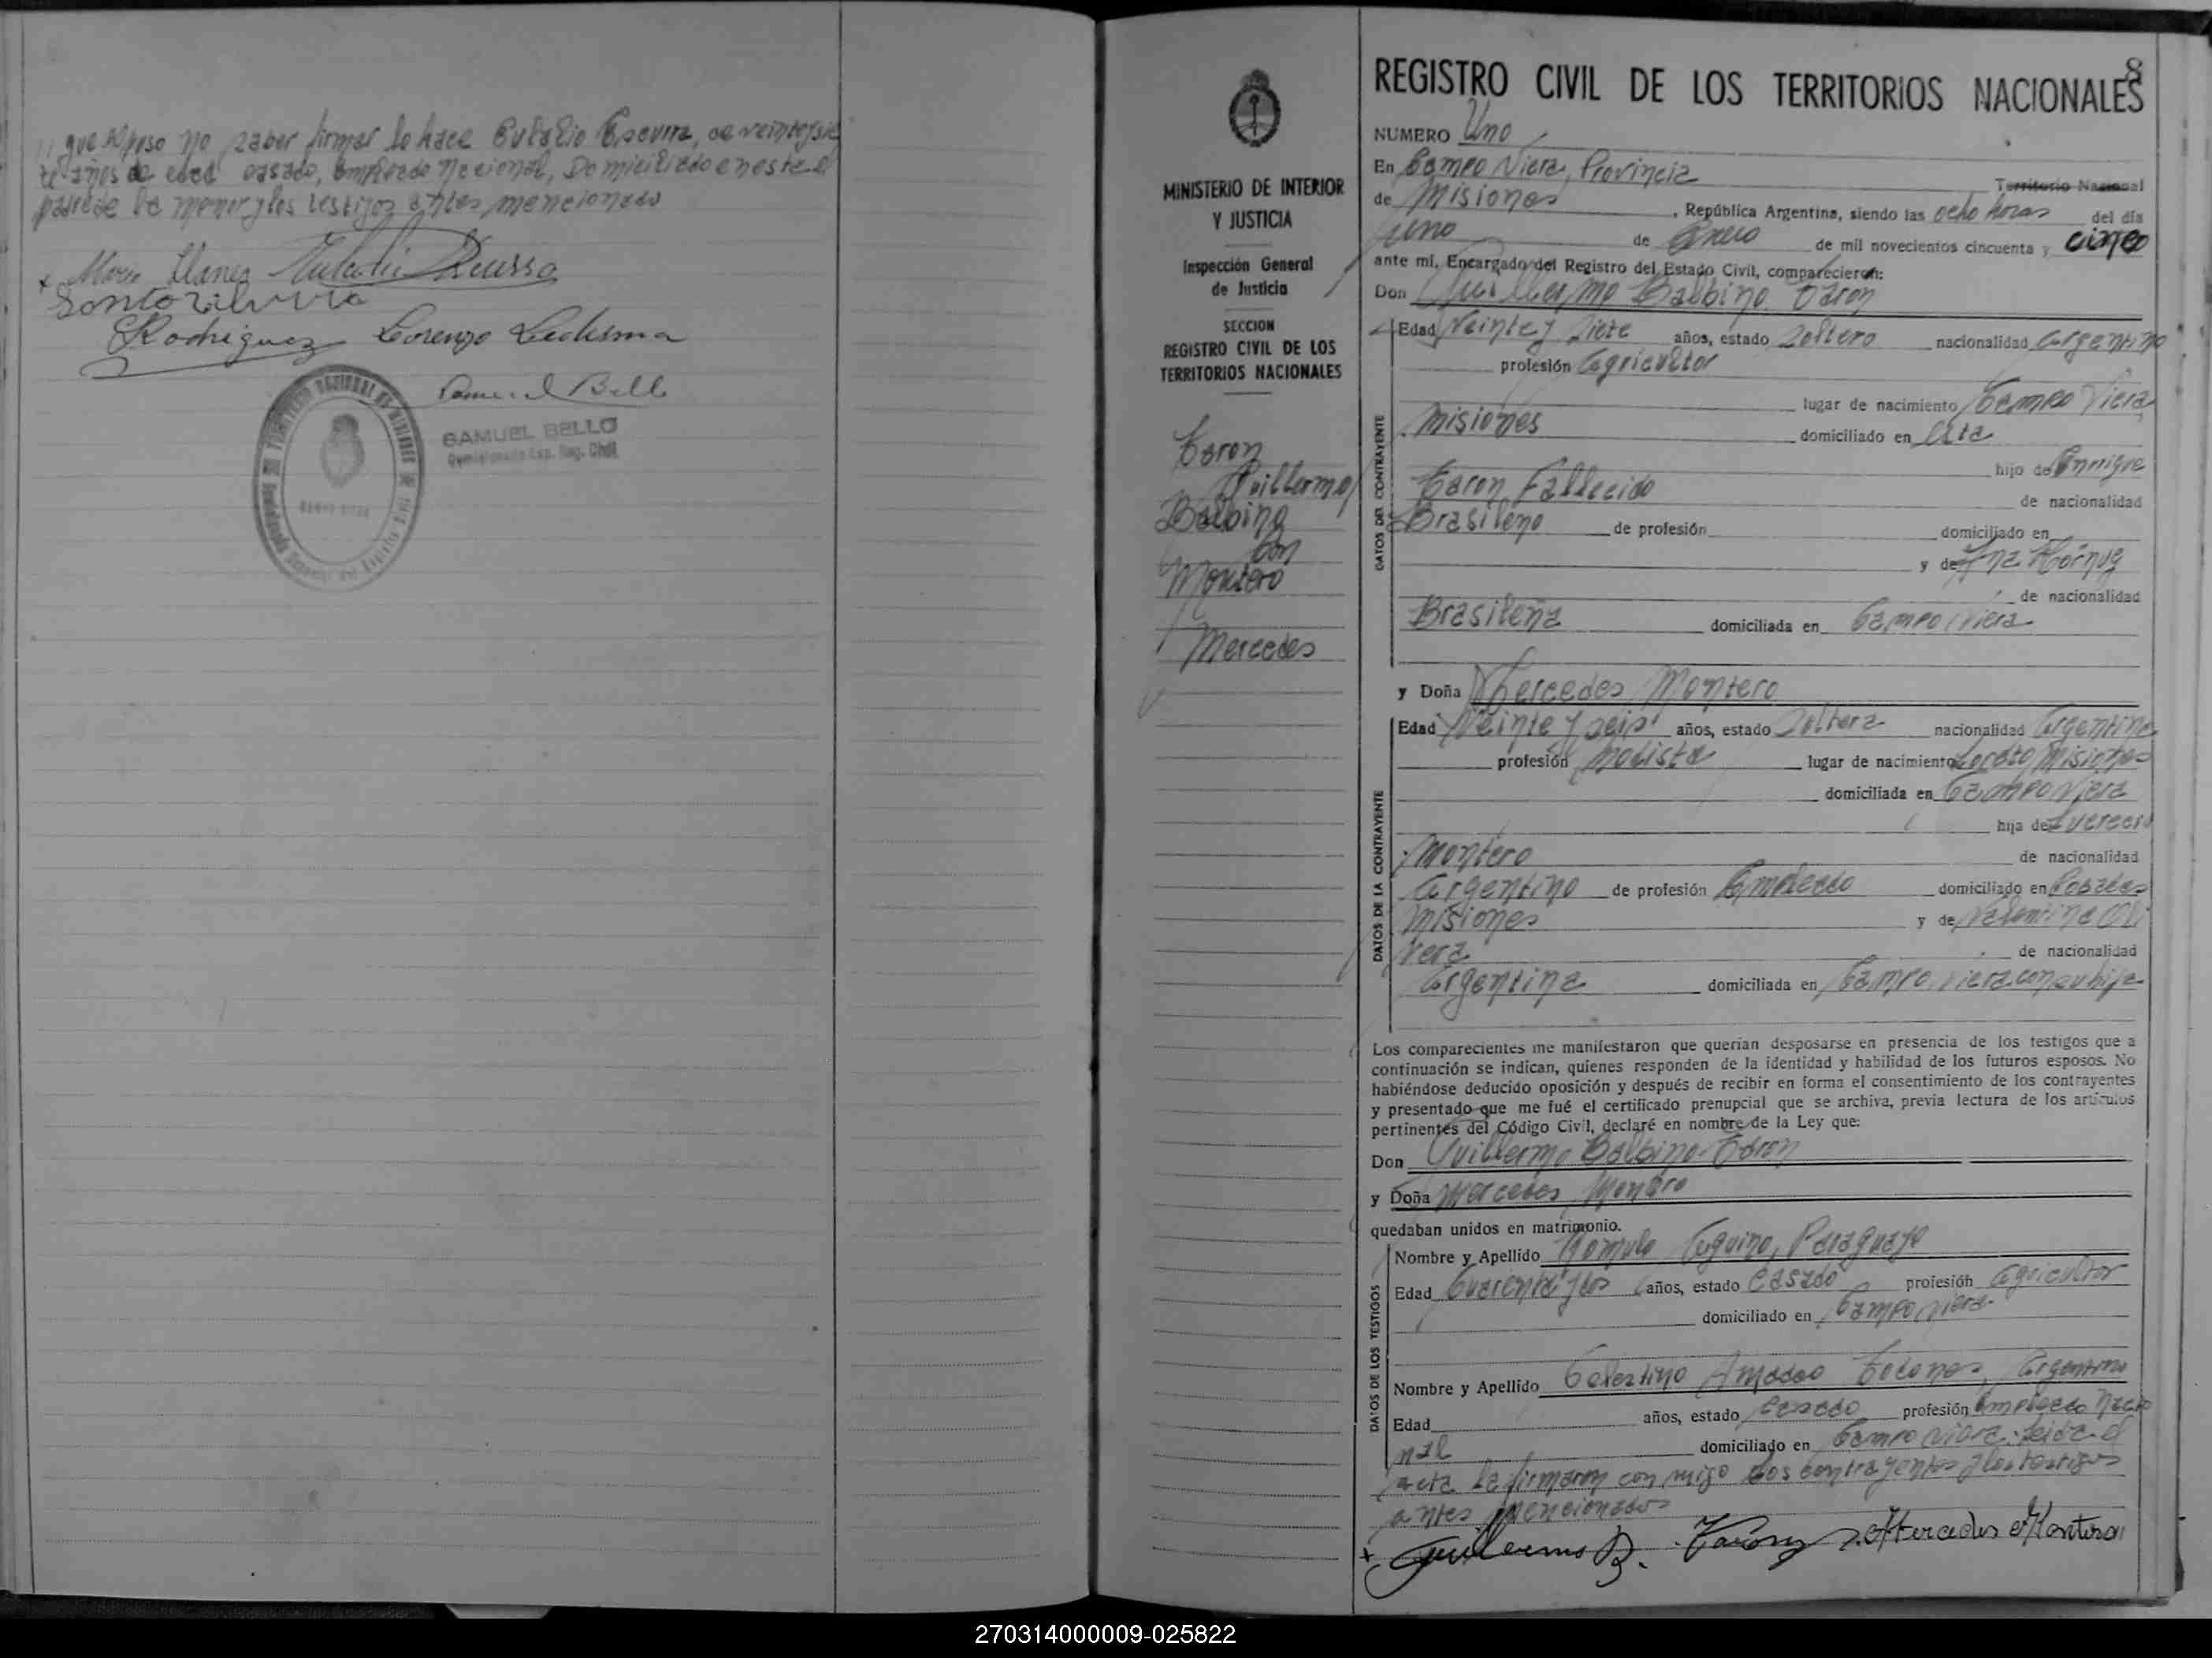 que expuso no saber firmar lo hace Eulalio Escurra, de veintisie
te años de edad casado, empleado nacional, Domiciliado en esta el
padre de la menor y los testigos antes mencionado
Mario Llanes
Rodriguez Lorenzo Ledesma
Samuel Bello
SAMUEL BELLO
MINISTERIO DE INTERIOR
Y JUSTICIA
Inspección General
de Justicia
SECCION
REGISTRO CIVIL DE LOS
TERRITORIOS NACIONALES
Guillermo
Balbino
Con
Montero
Mercedes
8
REGISTRO CIVIL DE LOS TERRITORIOS NACIONALES
NUMERO Uno
En Campo Viera, Provincia Territorio Nacional
de Misiones, República Argentina, siendo las ocho horas del día
uno de Enero de mil novecientos cincuenta y cinco
ante mí, Encargado del Registro del Estado Civil, comparecieron:
Don Guillermo Balbino
DATOS DEL CONTRAYENTE
Edad Veinte y Siete años, estado Soltero nacionalidad Argentino
profesión Agricultor
lugar de nacimiento Campo Viera
Misiones domiciliado en Esta
hijo de Enrique
Fallecido de nacionalidad
Brasileño de profesión domiciliado en
y de Ana
de nacionalidad
Brasileña domiciliada en Campo Viera
y Doña Mercedes Montero
DATOS DE LA CONTRAYENTE
Edad Veinte y seis años, estado Soltera nacionalidad Argentina
profesión Modista lugar de nacimiento Loreto Misiones
domiciliada en Campo Viera
hija de
Montero de nacionalidad
Argentino de profesión Empleado domiciliado en Posadas
Misiones y de Valentina Oli
vera de nacionalidad
Argentina domiciliada en Campo Viera con su hija
Los comparecientes me manifestaron que querían desposarse en presencia de los testigos que a
continuación se indican, quienes responden de la identidad y habilidad de los futuros esposos. No
habiéndose deducido oposición y después de recibir en forma el consentimiento de los contrayentes
y presentado que me fué el certificado prenupcial que se archiva, previa lectura de los artículos
pertinentes del Código Civil, declaré en nombre de la Ley que:
Don Guillermo Balbino
y Doña Mercedes Montero
quedaban unidos en matrimonio.
DATOS DE LOS TESTIGOS
Nombre y Apellido Romulo Aquino, Paraguayo
Edad Cuarenta y dos años, estado Casado profesión Agricultor
domiciliado en Campo Viera
Nombre y Apellido Celestino Amadeo Argentino
Edad años, estado Casado profesión Empleado Nacio
nal domiciliado en Campo Viera. Leida el
acta la firmaron con migo los contrayentes y los testigos
antes mencionados
Guillermo B. Mercedes Montero
270314000009-025822